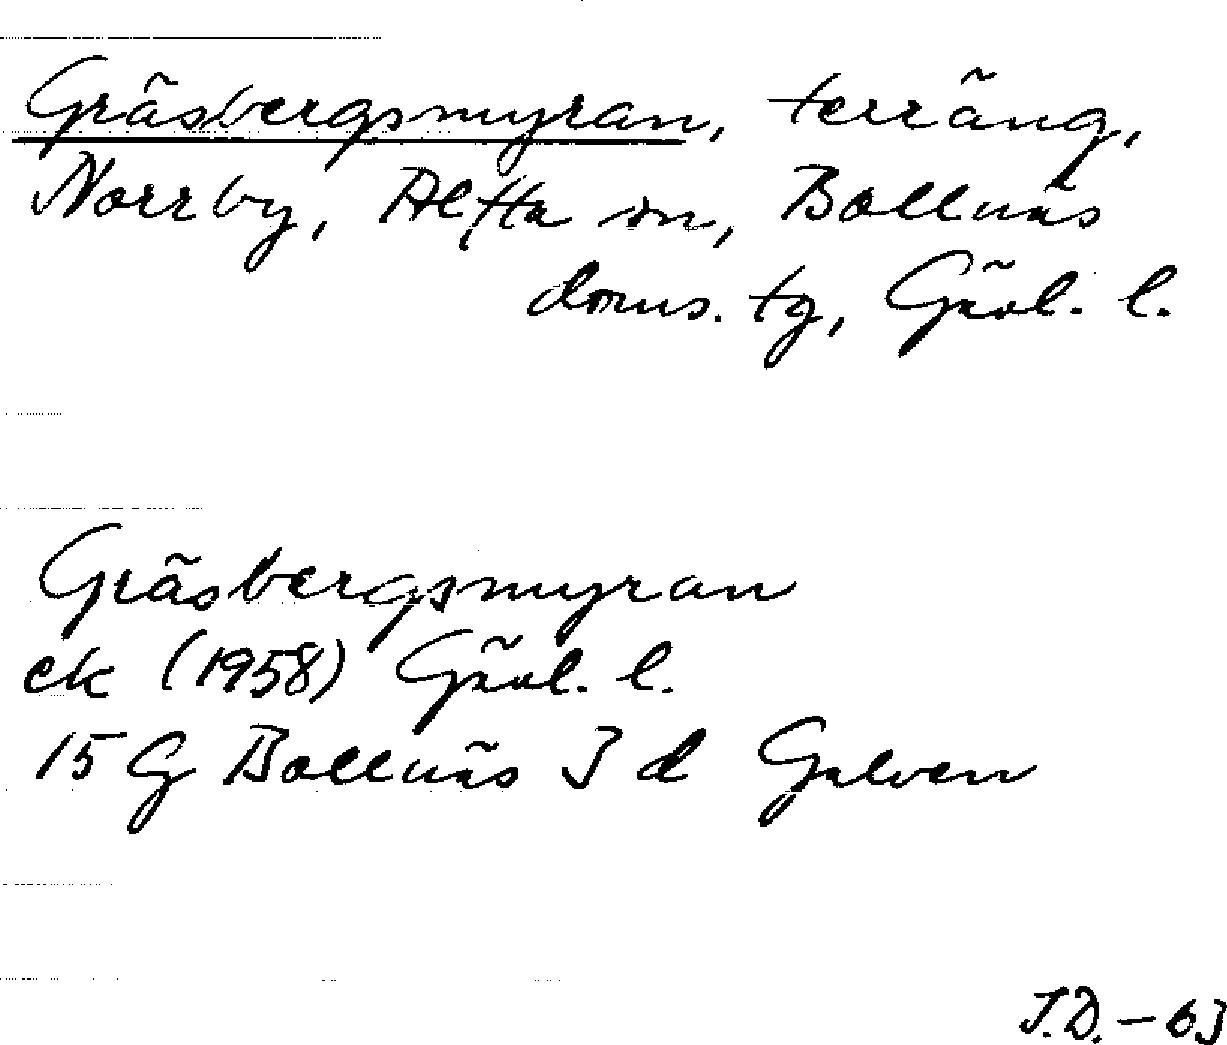 Gräsbergsmyran, terräng,
Norrby, Alfta sn, Bollnäs
doms. tg, Gävl. l.
Gräsbergsmyran
ek (1958) Gävl. l.
15 G Bollnäs 3 d Galven
J.D. - 63